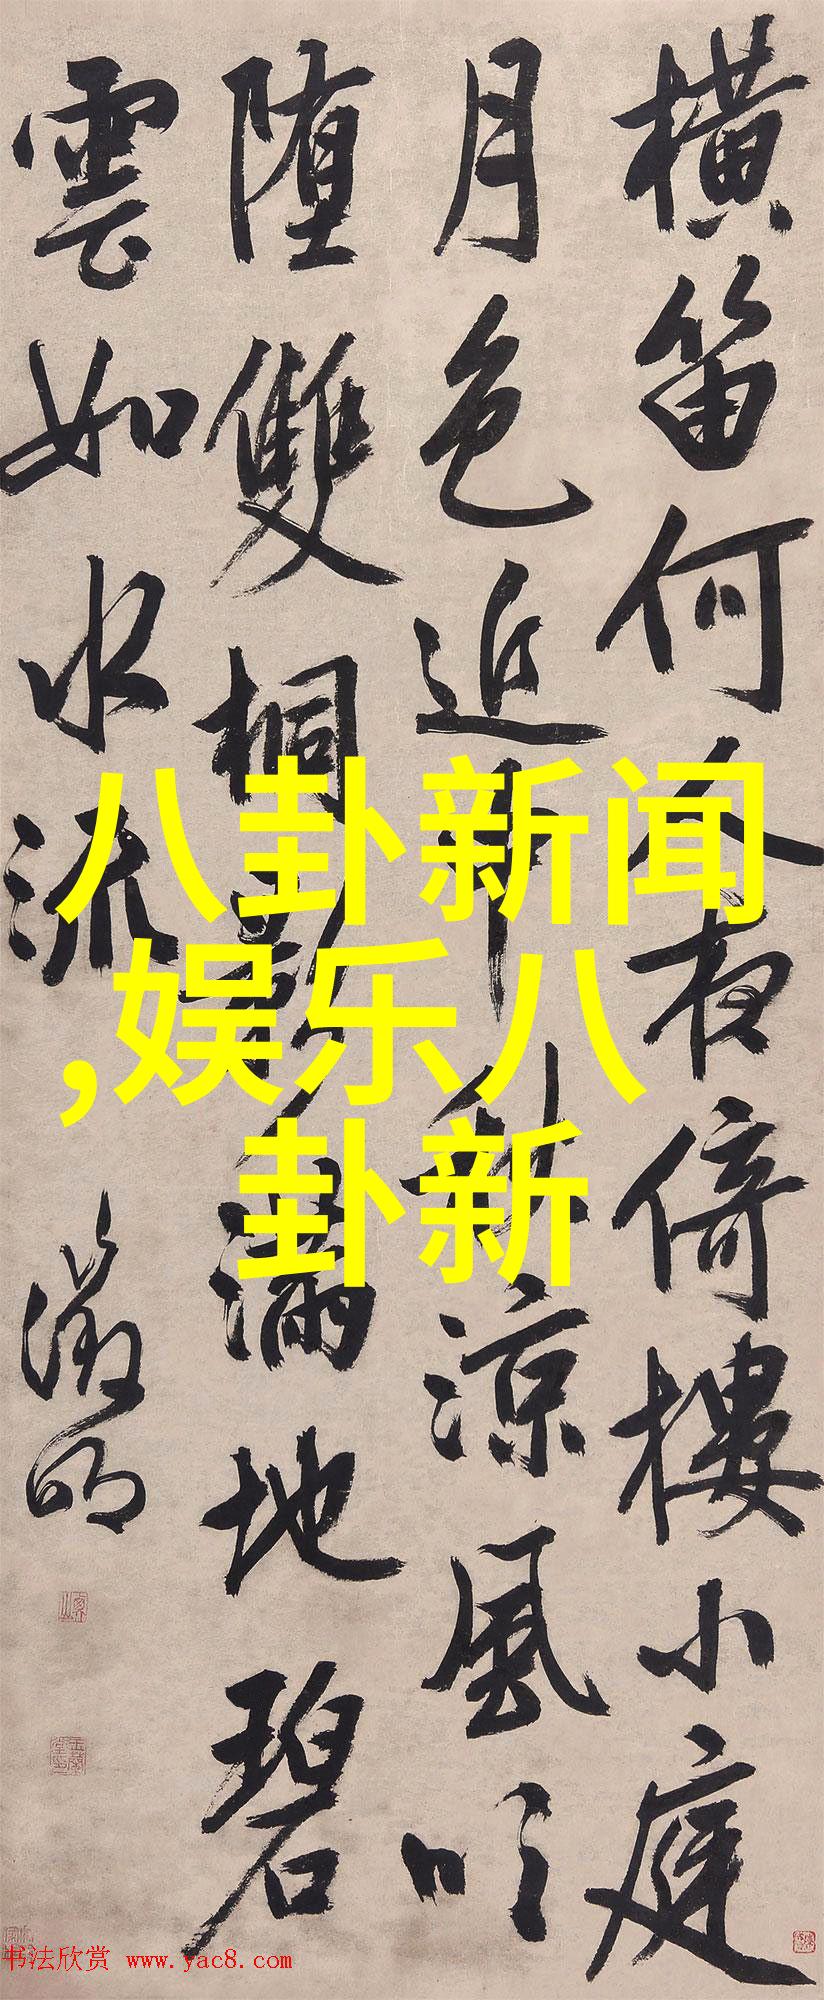 橫笛何人夜倚樓小庭
月色近中秋涼風吹
堕雙桐影滿地碧
雲如水流
徵明
八卦新闻
,娱乐八
卦新
书法欣赏 www.yac8.com